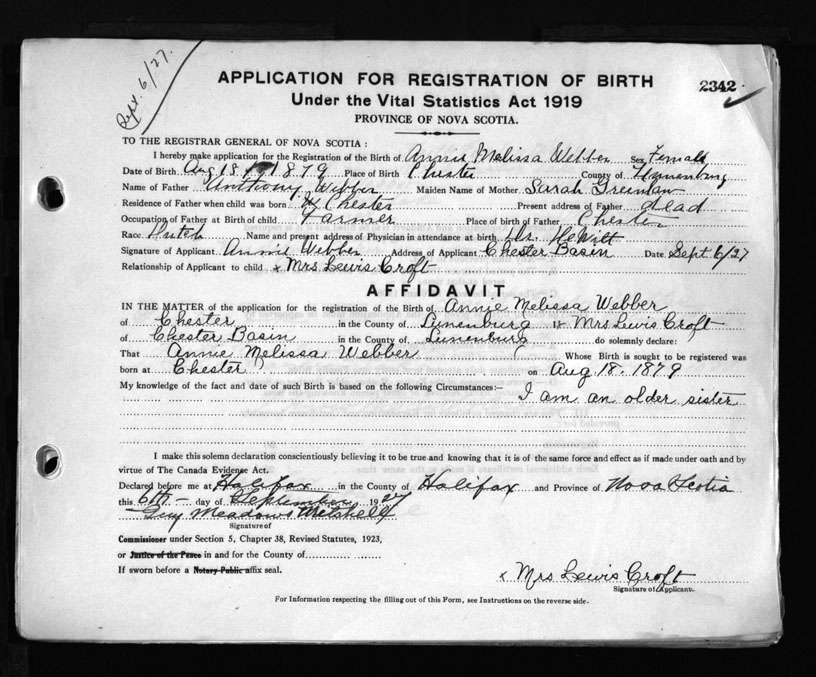 Sept. 6/27.
APPLICATION FOR REGISTRATION OF BIRTH
2342
Under the Vital Statistics Act 1919
PROVINCE OF NOVA SCOTIA.
TO THE REGISTRAR GENERAL OF NOVA SCOTIA :
I hereby make application for the Registration of the Birth of Annie Melissa Webber Sex Female
Date of Birth Aug 18 1879 Place of Birth Chester County of Lunenburg
Name of Father Anthony Webber Maiden Name of Mother Sarah
Residence of Father when child was born Chester Present address of Father dead
Occupation of Father at Birth of child Farmer Place of birth of Father Chester
Race Dutch Name and present address of Physician in attendance at birth Dr. HeWitt
Signature of Applicant Annie Webber Address of Applicant Chester Basin Date Sept 6/27
Relationship of Applicant to child x Mrs Lewis Croft
AFFIDAVIT
IN THE MATTER of the application for the registration of the Birth of Annie Melissa Webber
of Chester in the County of Lunenburg I, Mrs Lewis Croft
of Chester Basin in the County of Lunenburg do solemnly declare:
That Annie Melissa Webber Whose Birth is sought to be registered was
born at Chester on Aug 18. 1879
My knowledge of the fact and date of such Birth is based on the following Circumstances:—
I am an older sister
I make this solemn declaration conscientiously believing it to be true and knowing that it is of the same force and effect as if made under oath and by
virtue of The Canada Evidence Act.
Declared before me at Halifax in the County of Halifax and Province of Nova Scotia
this 6th — day of September 1927
Guy Meadows
Signature of
Commissioner under Section 5, Chapter 38, Revised Statutes, 1923,
or Justice of the Peace in and for the County of
If sworn before a Notary Public affix seal.
x Mrs Lewis Croft
Signature of Applicant.
For Information respecting the filling out of this Form, see Instructions on the reverse side.